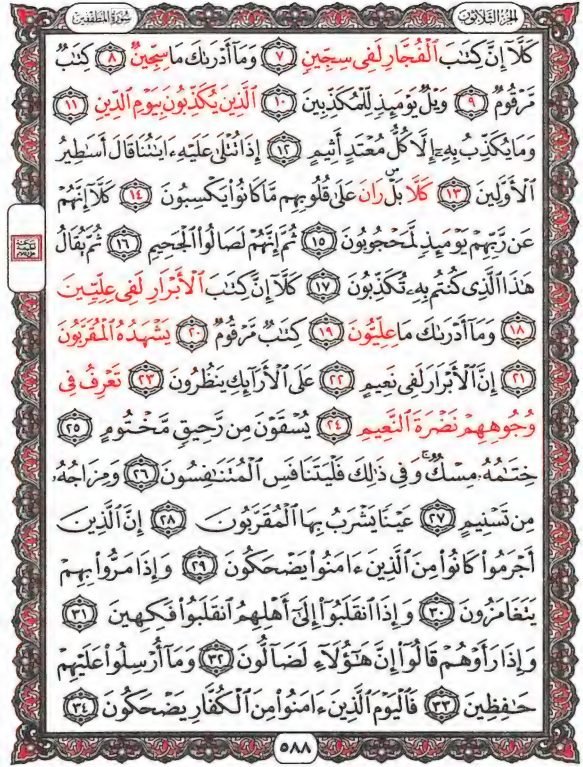 الجزء الثلاثون
سورة المطففين
كَلَّا إِنَّ كِتَٰبَ ٱلْفُجَّارِ لَفِى سِجِّينٍ ٧ وَمَآ أَدْرَىٰكَ مَا سِجِّينٌ ٨ كِتَٰبٌ
مَّرْقُومٌ ٩ وَيْلٌ يَوْمَئِذٍ لِّلْمُكَذِّبِينَ ١٠ ٱلَّذِينَ يُكَذِّبُونَ بِيَوْمِ ٱلدِّينِ ١١
وَمَا يُكَذِّبُ بِهِۦٓ إِلَّا كُلُّ مُعْتَدٍ أَثِيمٍ ١٢ إِذَا تُتْلَىٰ عَلَيْهِ ءَايَٰتُنَا قَالَ أَسَٰطِيرُ
ٱلْأَوَّلِينَ ١٣ كَلَّا بَلْ رَانَ عَلَىٰ قُلُوبِهِم مَّا كَانُوا۟ يَكْسِبُونَ ١٤ كَلَّآ إِنَّهُمْ
عَن رَّبِّهِمْ يَوْمَئِذٍ لَّمَحْجُوبُونَ ١٥ ثُمَّ إِنَّهُمْ لَصَالُوا۟ ٱلْجَحِيمِ ١٦ ثُمَّ يُقَالُ
هَٰذَا ٱلَّذِى كُنتُم بِهِۦ تُكَذِّبُونَ ١٧ كَلَّآ إِنَّ كِتَٰبَ ٱلْأَبْرَارِ لَفِى عِلِّيِّينَ
١٨ وَمَآ أَدْرَىٰكَ مَا عِلِّيُّونَ ١٩ كِتَٰبٌ مَّرْقُومٌ ٢٠ يَشْهَدُهُ ٱلْمُقَرَّبُونَ
٢١ إِنَّ ٱلْأَبْرَارَ لَفِى نَعِيمٍ ٢٢ عَلَى ٱلْأَرَآئِكِ يَنظُرُونَ ٢٣ تَعْرِفُ فِى
وُجُوهِهِمْ نَضْرَةَ ٱلنَّعِيمِ ٢٤ يُسْقَوْنَ مِن رَّحِيقٍ مَّخْتُومٍ ٢٥
خِتَٰمُهُۥ مِسْكٌ ۚ وَفِى ذَٰلِكَ فَلْيَتَنَافَسِ ٱلْمُتَنَٰفِسُونَ ٢٦ وَمِزَاجُهُۥ
مِن تَسْنِيمٍ ٢٧ عَيْنًا يَشْرَبُ بِهَا ٱلْمُقَرَّبُونَ ٢٨ إِنَّ ٱلَّذِينَ
أَجْرَمُوا۟ كَانُوا۟ مِنَ ٱلَّذِينَ ءَامَنُوا۟ يَضْحَكُونَ ٢٩ وَإِذَا مَرُّوا۟ بِهِمْ
يَتَغَامَزُونَ ٣٠ وَإِذَا ٱنقَلَبُوٓا۟ إِلَىٰٓ أَهْلِهِمُ ٱنقَلَبُوا۟ فَكِهِينَ ٣١
وَإِذَا رَأَوْهُمْ قَالُوٓا۟ إِنَّ هَٰٓؤُلَآءِ لَضَآلُّونَ ٣٢ وَمَآ أُرْسِلُوا۟ عَلَيْهِمْ
حَٰفِظِينَ ٣٣ فَٱلْيَوْمَ ٱلَّذِينَ ءَامَنُوا۟ مِنَ ٱلْكُفَّارِ يَضْحَكُونَ ٣٤
٥٨٨